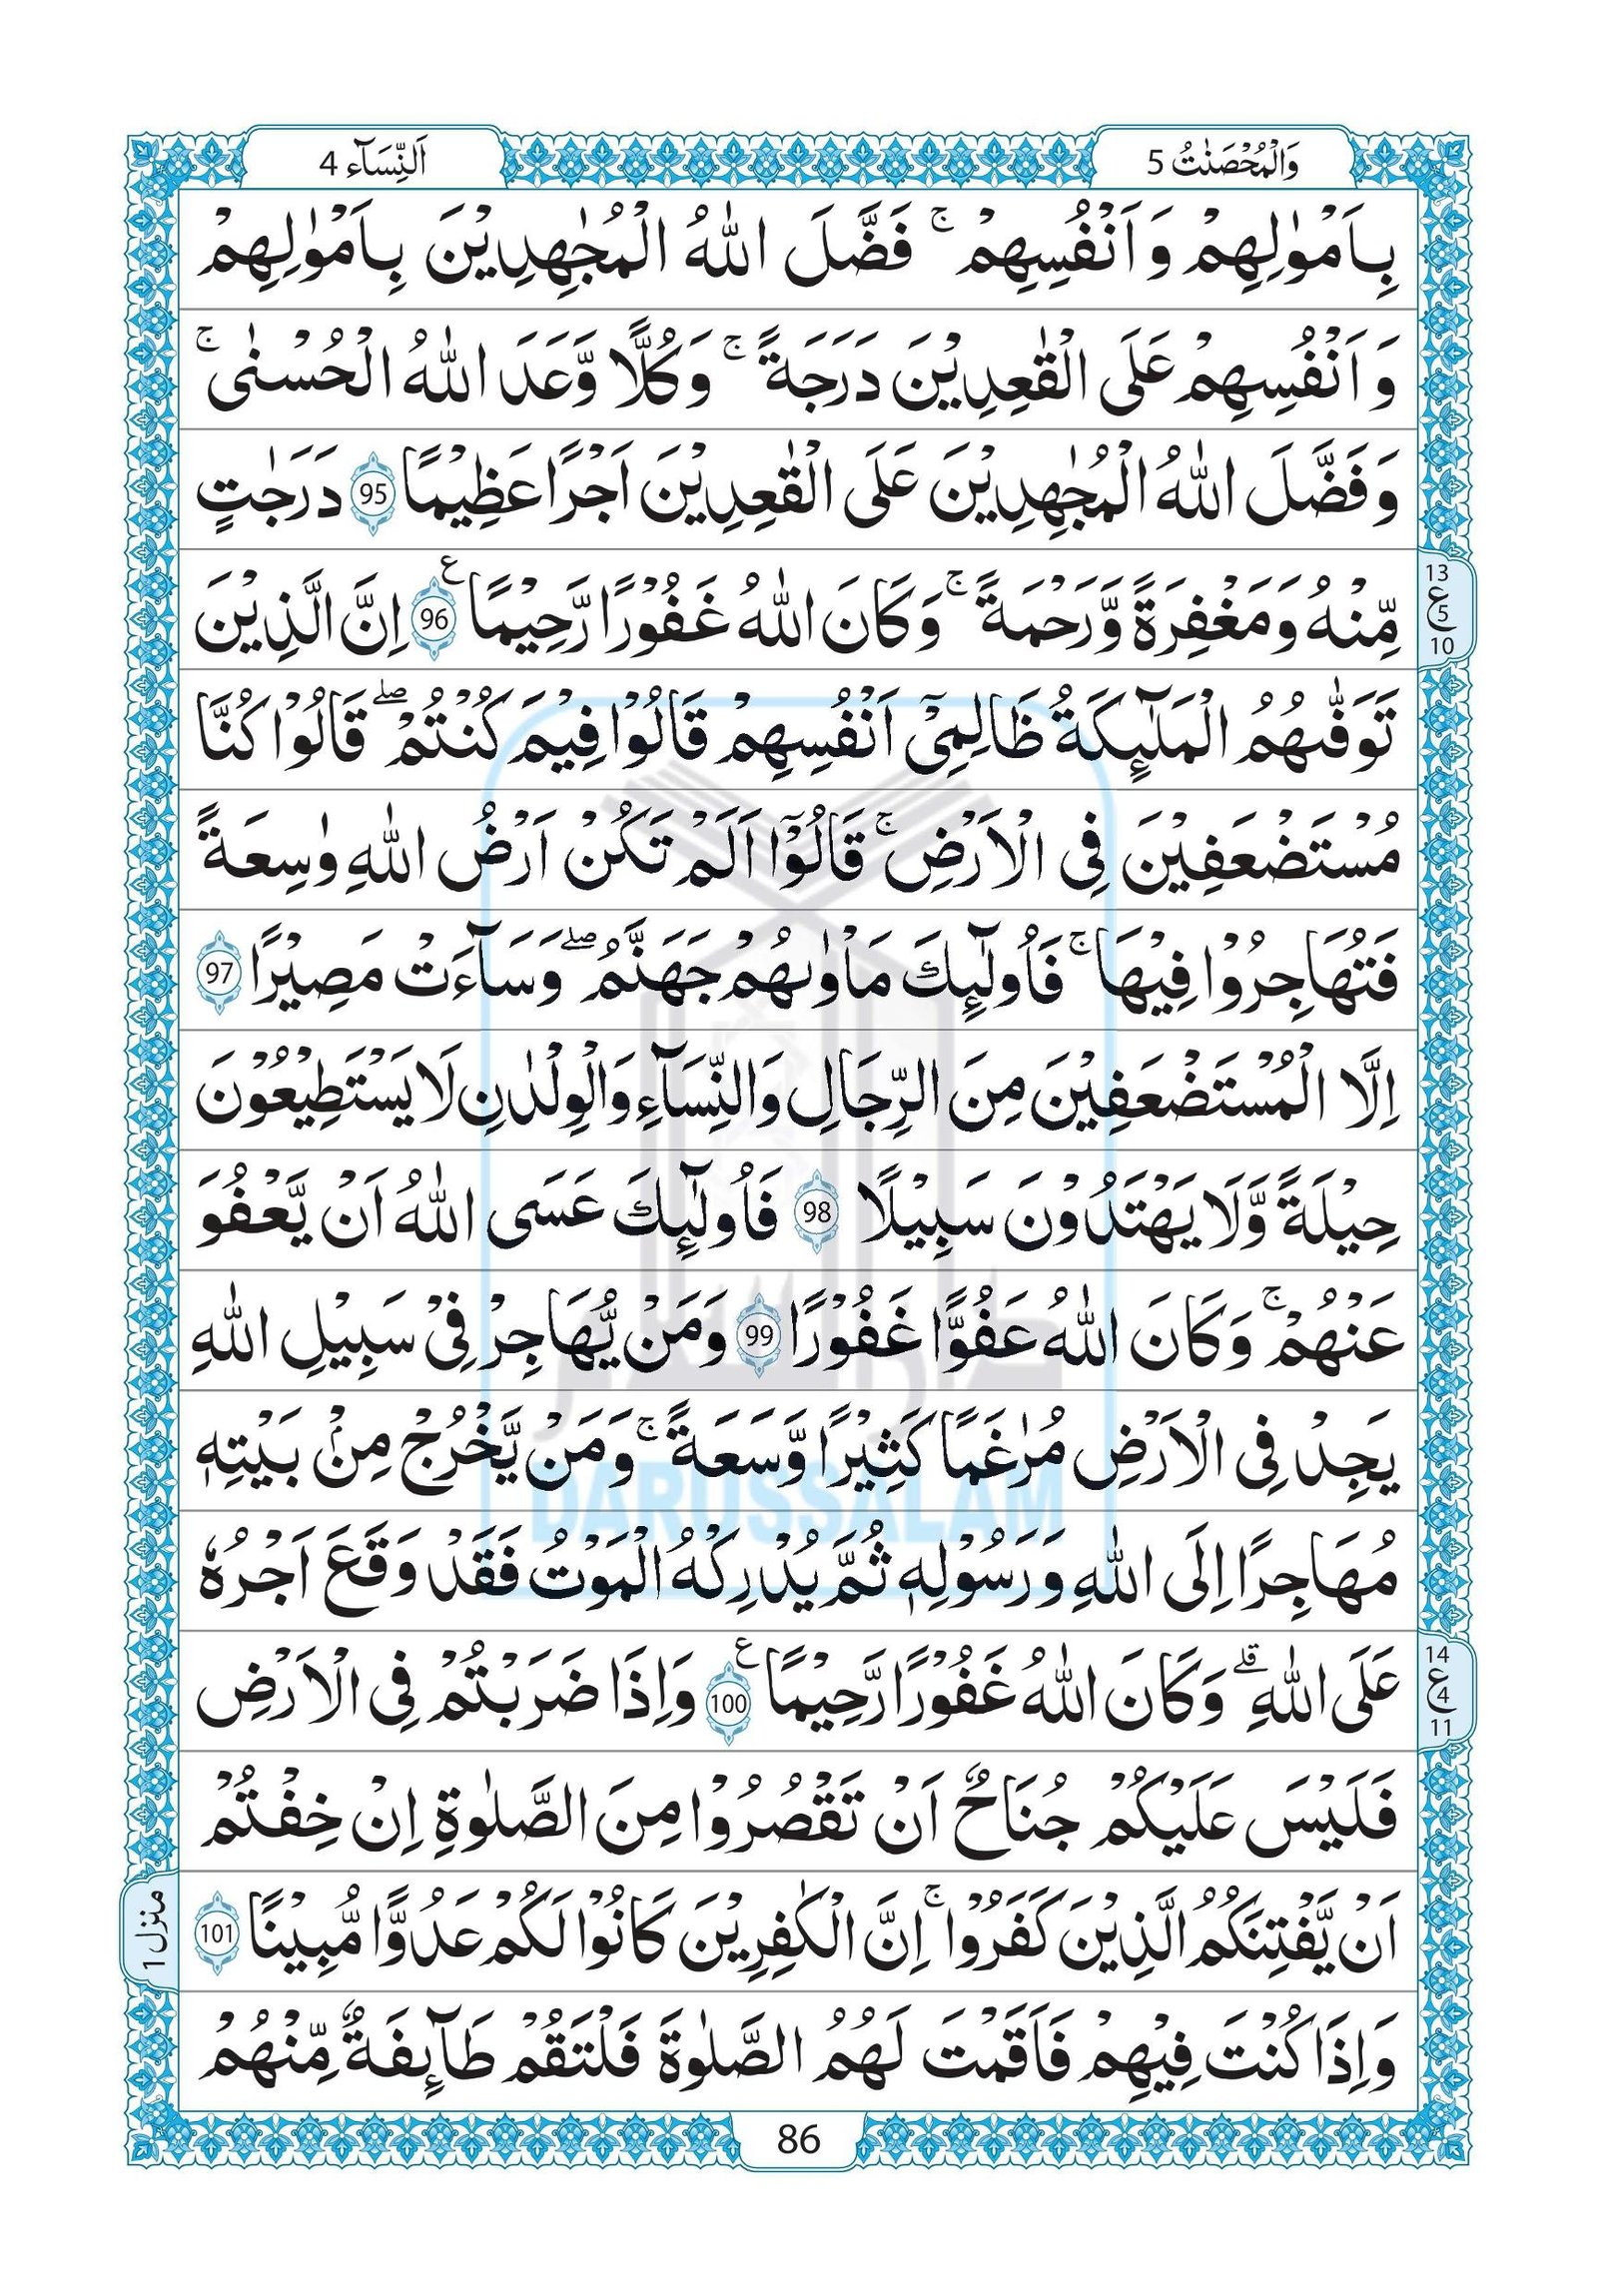 وَالْمُحْصَنٰتُ 5
اَلنِّسَآء 4
بِاَمْوٰلِهِمْ وَاَنْفُسِهِمْ ۚ فَضَّلَ اللّٰهُ الْمُجٰهِدِيْنَ بِاَمْوٰلِهِمْ
وَاَنْفُسِهِمْ عَلَى الْقٰعِدِيْنَ دَرَجَةً ۚ وَكُلًّا وَّعَدَ اللّٰهُ الْحُسْنٰى ۚ
وَفَضَّلَ اللّٰهُ الْمُجٰهِدِيْنَ عَلَى الْقٰعِدِيْنَ اَجْرًا عَظِيْمًا 95 دَرَجٰتٍ
مِّنْهُ وَمَغْفِرَةً وَّرَحْمَةً ۚ وَكَانَ اللّٰهُ غَفُوْرًا رَّحِيْمًا 96 ع اِنَّ الَّذِيْنَ
13
ع
5
10
تَوَفّٰىهُمُ الْمَلٰٓىِٕكَةُ ظَالِمِيْٓ اَنْفُسِهِمْ قَالُوْا فِيْمَ كُنْتُمْ ۖ قَالُوْا كُنَّا
مُسْتَضْعَفِيْنَ فِى الْاَرْضِ ۚ قَالُوْٓا اَلَمْ تَكُنْ اَرْضُ اللّٰهِ وٰسِعَةً
فَتُهَاجِرُوْا فِيْهَا ۚ فَاُولٰٓىِٕكَ مَاْوٰىهُمْ جَهَنَّمُ ۖ وَسَآءَتْ مَصِيْرًا 97
اِلَّا الْمُسْتَضْعَفِيْنَ مِنَ الرِّجَالِ وَالنِّسَآءِ وَالْوِلْدٰنِ لَا يَسْتَطِيْعُوْنَ
حِيْلَةً وَّلَا يَهْتَدُوْنَ سَبِيْلًا 98 فَاُولٰٓىِٕكَ عَسَى اللّٰهُ اَنْ يَّعْفُوَ
عَنْهُمْ ۚ وَكَانَ اللّٰهُ عَفُوًّا غَفُوْرًا 99 وَمَنْ يُّهَاجِرْ فِيْ سَبِيْلِ اللّٰهِ
يَجِدْ فِى الْاَرْضِ مُرٰغَمًا كَثِيْرًا وَّسَعَةً ۚ وَمَنْ يَّخْرُجْ مِنْۢ بَيْتِهٖ
DARUSSALAM
مُهَاجِرًا اِلَى اللّٰهِ وَرَسُوْلِهٖ ثُمَّ يُدْرِكْهُ الْمَوْتُ فَقَدْ وَقَعَ اَجْرُهٗ
عَلَى اللّٰهِ ۗ وَكَانَ اللّٰهُ غَفُوْرًا رَّحِيْمًا 100 ع وَاِذَا ضَرَبْتُمْ فِى الْاَرْضِ
14
ع
4
11
فَلَيْسَ عَلَيْكُمْ جُنَاحٌ اَنْ تَقْصُرُوْا مِنَ الصَّلٰوةِ اِنْ خِفْتُمْ
اَنْ يَّفْتِنَكُمُ الَّذِيْنَ كَفَرُوْا ۚ اِنَّ الْكٰفِرِيْنَ كَانُوْا لَكُمْ عَدُوًّا مُّبِيْنًا 101
منزل 1
وَاِذَا كُنْتَ فِيْهِمْ فَاَقَمْتَ لَهُمُ الصَّلٰوةَ فَلْتَقُمْ طَآىِٕفَةٌ مِّنْهُمْ
86